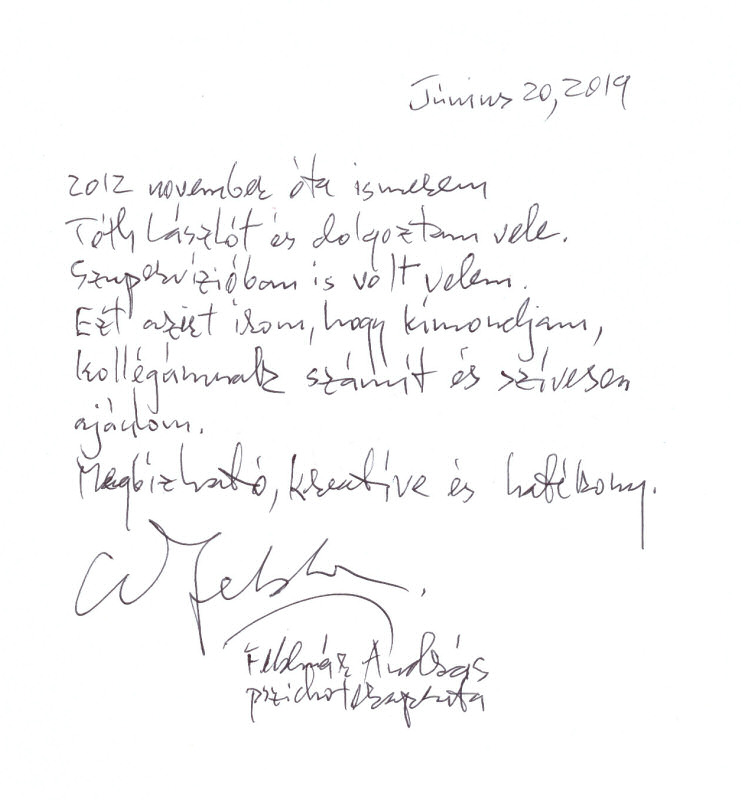 Június 20, 2019
2012 november óta ismerem
Tóth Lászlót és dolgoztam vele.
Szupervízióban is volt velem.
Ezt azért írom, hogy kimondjam,
kollégámnak számít és szívesen
ajánlom.
Megbízható, kreatíve és hatékony.
Feldmár András
pszichoterapeuta